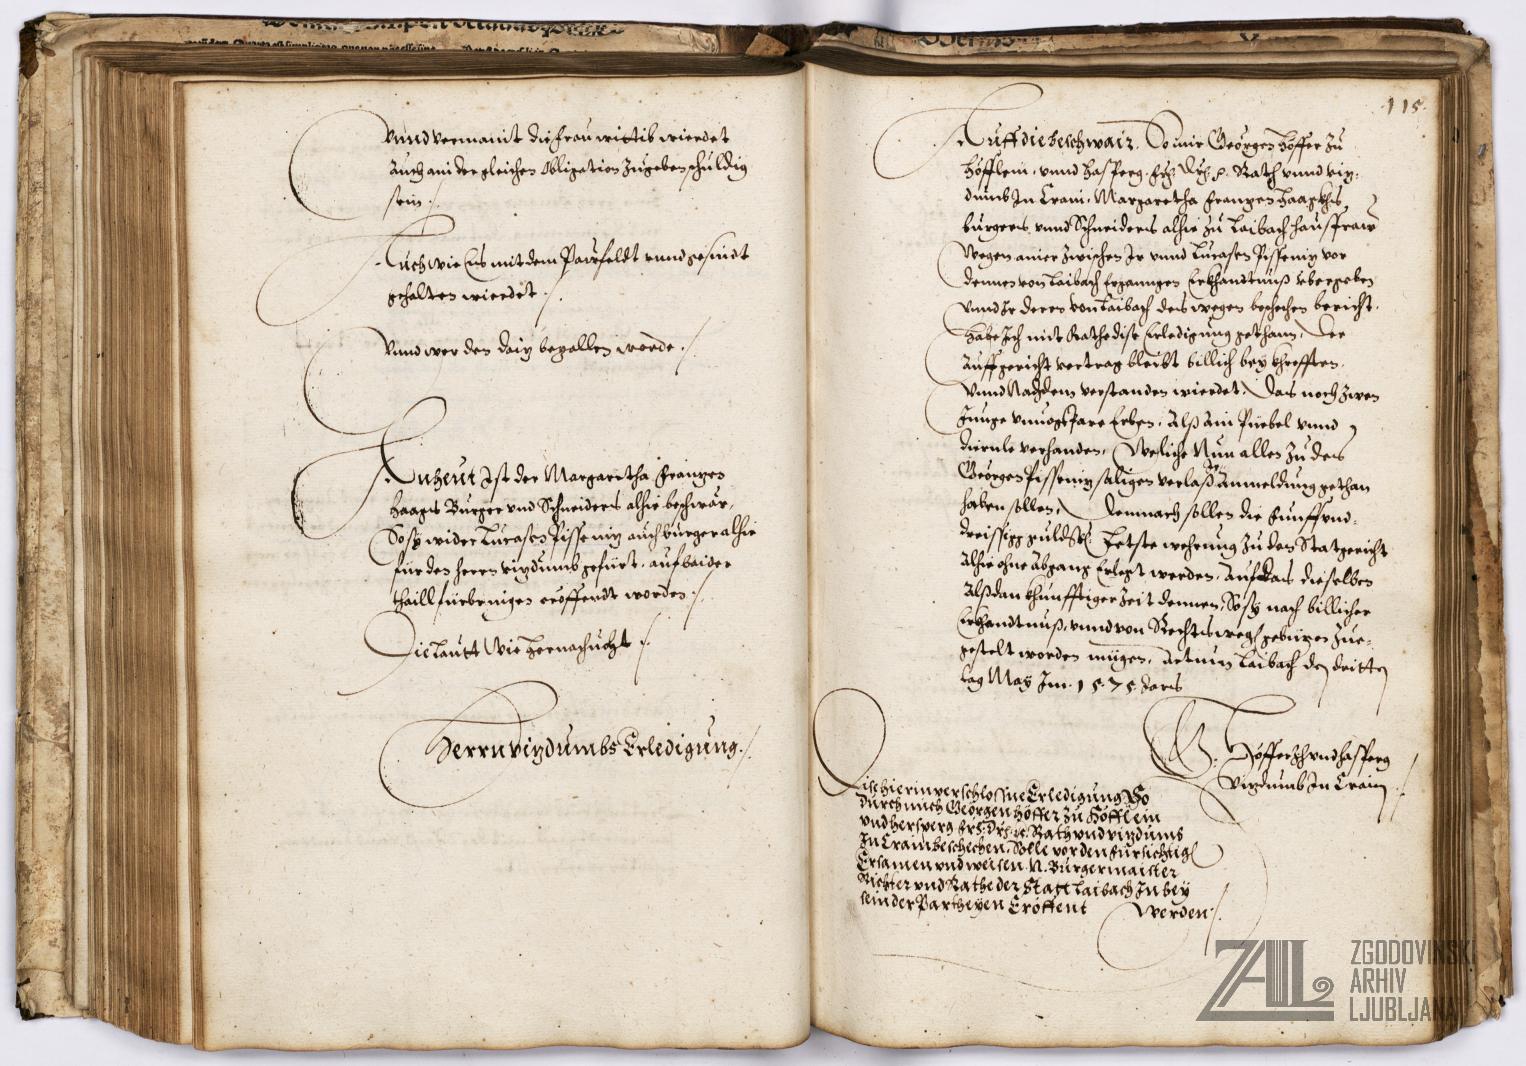 vnnd vermannt die frau wittib wierdet
auch ain dergleichen Obligation zugeben schuldig
sein ./.
Auch wie Eus mit dem Paurfeldt vnnd gesindt
gehalten wierdet ./.
Vnnd wer den daig bezallen werde ./.
An heut Ist der Margaretha Franzen
Haagis Burger vnd Schneiders alhie beschwär,
So sy wider Lucasen Pisseniz auch burger alhie
für den herrn vizdumb gefürt, auf baider
thaill fürbringen eröffendt worden ./.
Die lautt Wie hernachuolgt ./.
Herrn vizdumbs Erledigung ./.
115
Auff die beschwär, So mir Georgen Höffer zu
Höfflein, vnnd Hasperg, Frl: Drl: p. Rath vnnd viz:
dumb In Crain, Margaretha Franzen Haagkhis,
burgers vnnd Schneiders alhie zu Laibach hausfraw
Wegen ainer zwischen Ir vnnd Lucasen Pisseniz vor
dennen von Laibach Erganngen Erkhandtnuß vbergeben
vnnd Ir deren von Laibach desswegen beschehen bericht,
habe Ich mit Rathe dise Erledigung gethann, Der
auffgericht vertrag bleibt billich bey khrefften,
Vnnd Nachdem verstanden wierdet, Das noch zwen
Junge vnuogtpare Erben, Alß ain Püebel vnnd
diernle verhanden, Welliche Nun allen zu des
Georgen Pisseniz saligen verlaß Anmeldung gethan
haben sollen, Demnach sollen die funffvnd:
dreissigg guld: Letste wehrung zu dem Statgericht
alhie ohne abgang Erlegt werden, Auf das dieselben
Alßdan khunfftiger zeit dennen, So sy nach billicher
Erkhandtnuß, vnnd von Rechtswegen gebüren zue:
gestelt worden mügen, Actum Laibach den dritten
tag May Im .1575. Jars
G. Höffer zH vnd Hasperg
Vizdumb In Crain
Dise hierin verschlossne Erledigung So
durch mich Georgen Höffer zu Höfflein
vnd Hersperg Frl: Drl: p. Rath vnd vizdumb
In Crain beschechen, Solle vor den fürsichtigen
Ersamen vnd weisen N. Burgermaister
Richter vnd Rathe der Statt Laibach In bey
sein der Partheyen Eröffent werden ./.
ZAL ZGODOVINSKI
ARHIV
LJUBLJANA